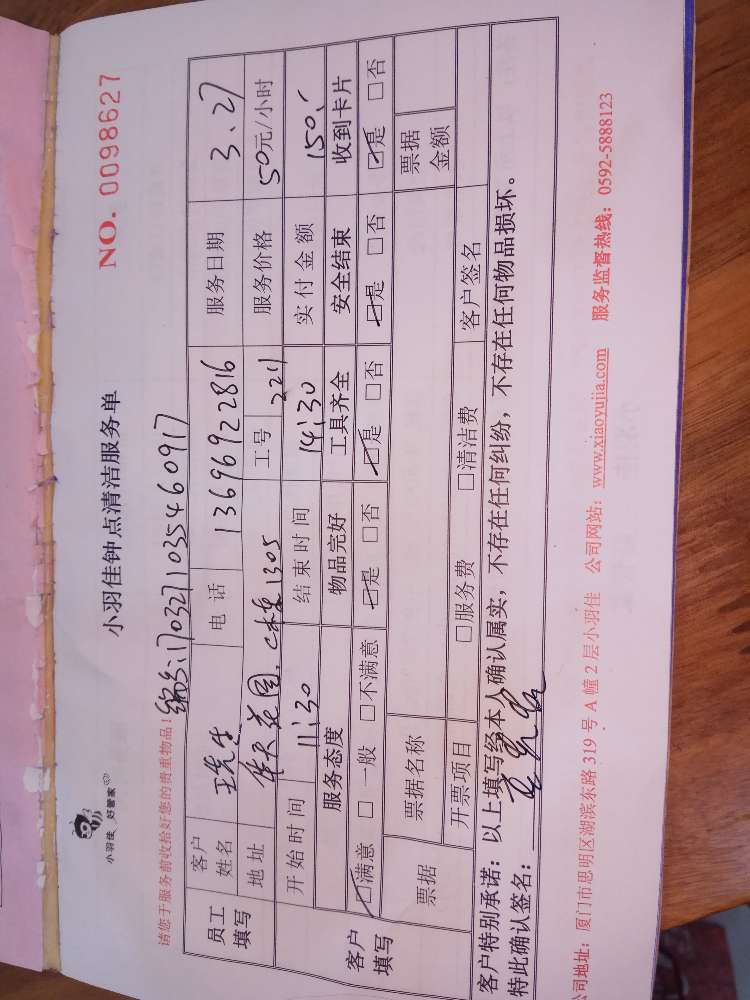 小羽佳 好管家
小羽佳钟点清洁服务单
NO. 0098627
请您于服务前收拾好您的贵重物品!
编号:1703271035460917
员工填写 客户姓名 王先生 电话 13696922816 服务日期 3.27
地址 花园,C栋1305 工号 2211 服务价格 50元/小时
客户填写 开始时间 11:30 结束时间 14:30 实付金额 150
服务态度 物品完好 工具齐全 安全结束 收到卡片
☑满意 □一般 □不满意 ☑是 □否 ☑是 □否 ☑是 □否 ☑是 □否
票据 票据名称 票据金额
开票项目 □服务费 □清洁费 客户签名
客户特别承诺:以上填写经本人确认属实,不存在任何纠纷,不存在任何物品损坏。
特此确认签名:
公司地址:厦门市思明区湖滨东路 319 号 A 幢 2 层小羽佳 公司网站:www.xiaoyujia.com 服务监督热线:0592-5888123